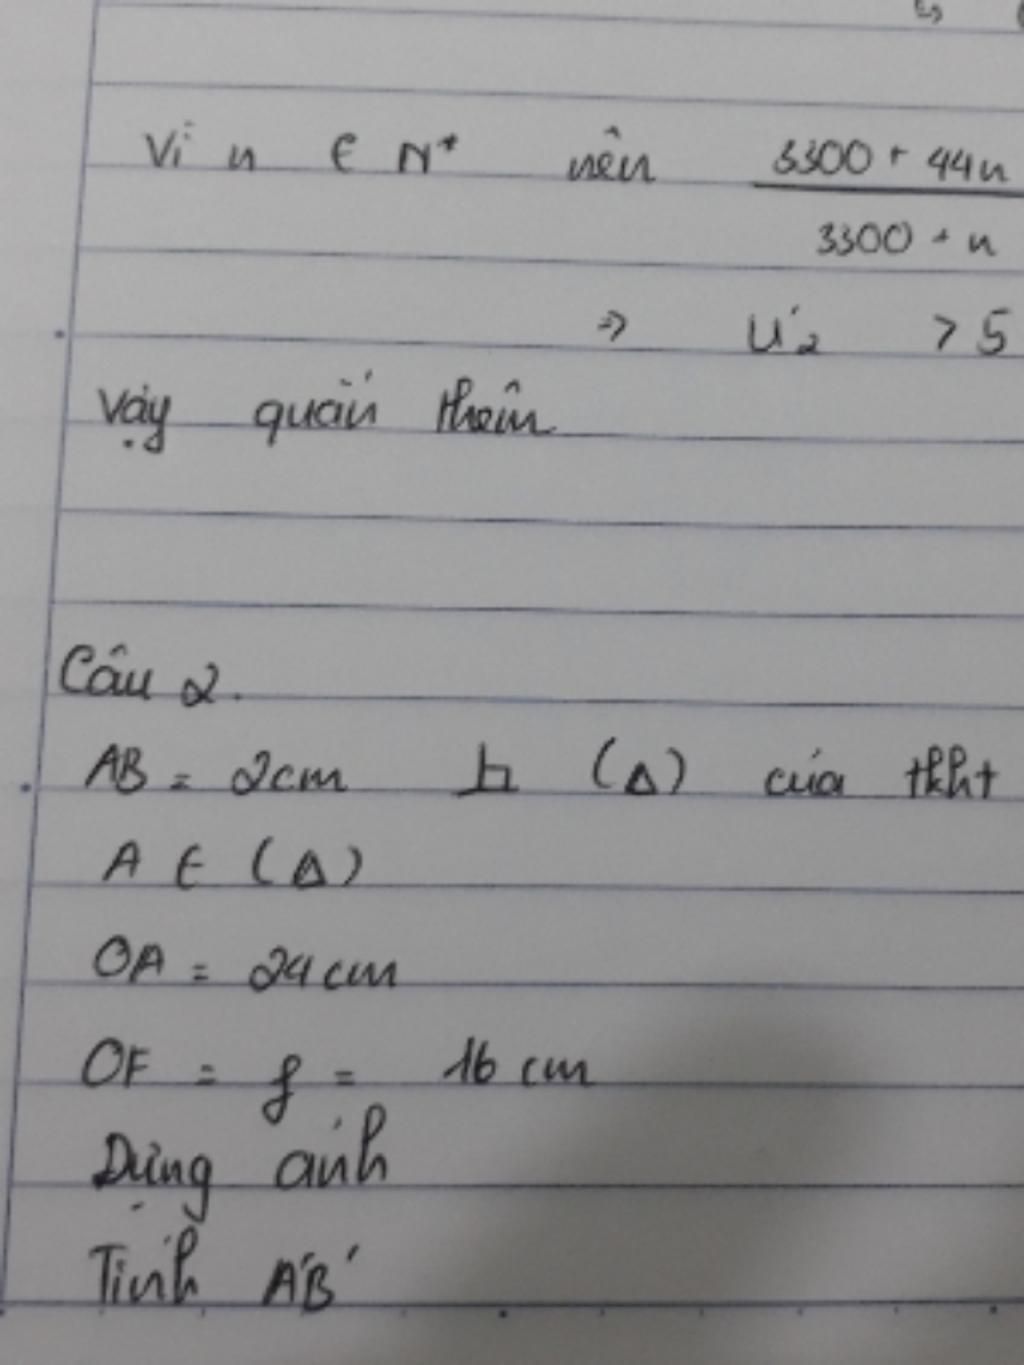 Vì n ∈ N* nên 3300 + 44n
3300 + n
⇒ U'₂ > 5
Vậy quấn thêm
Câu 2.
AB = 2cm ⊥ (Δ) của tkht
A ∈ (Δ)
OA = 24cm
OF = f = 16 cm
Dựng ảnh
Tính A'B'